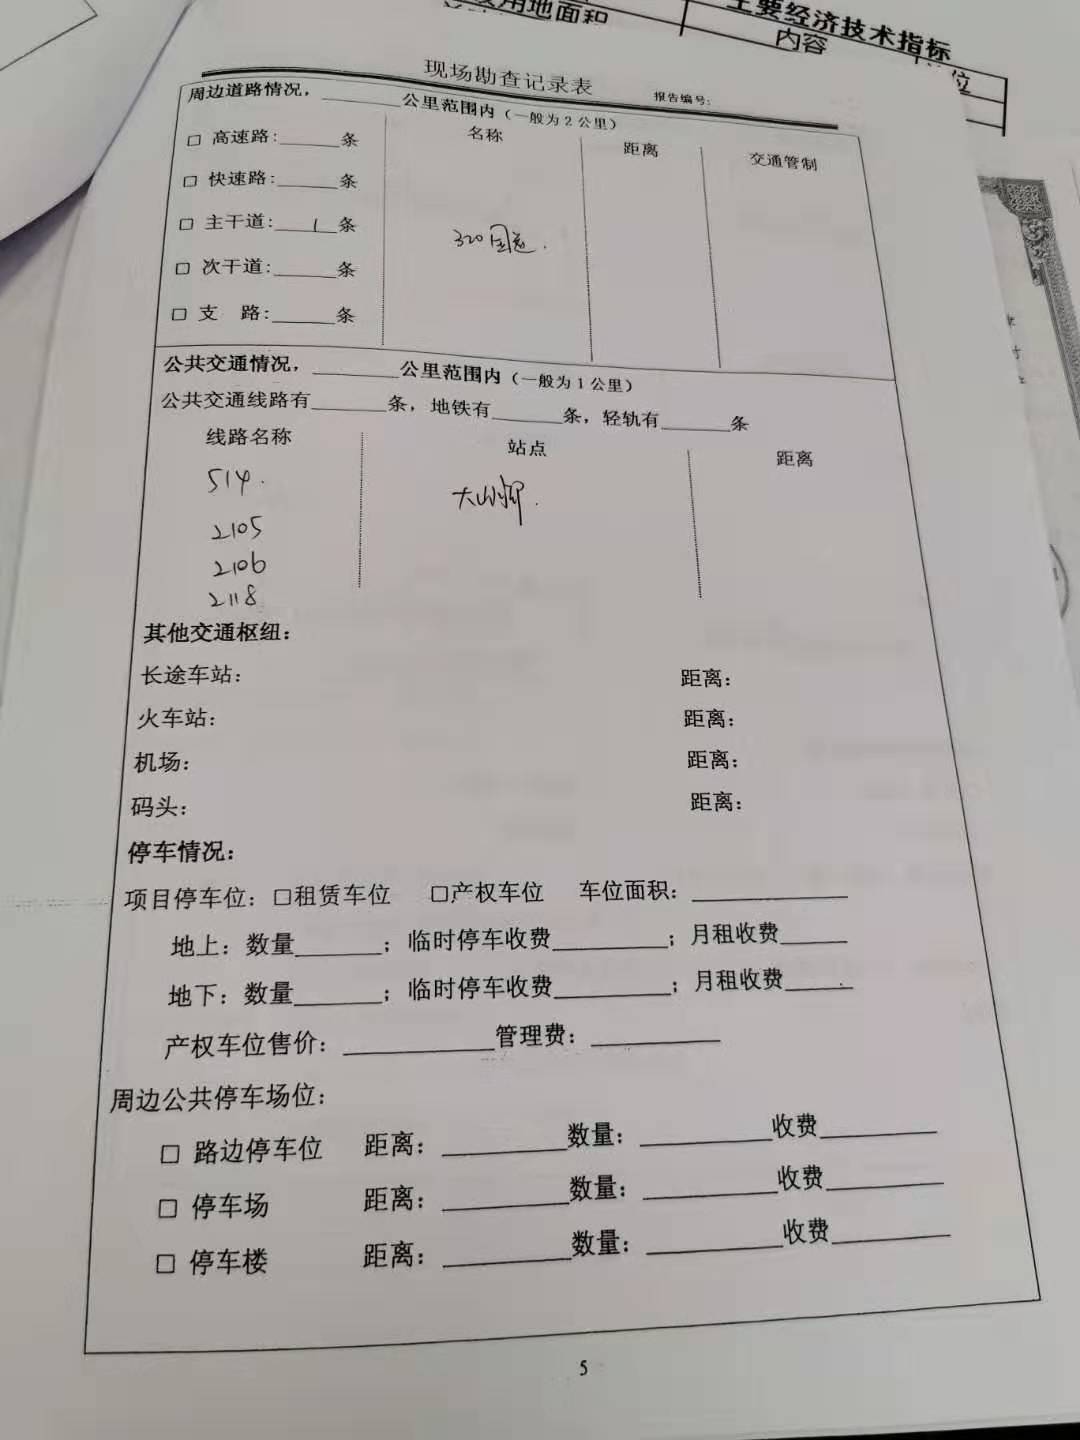 用地面积
主要经济技术指标
内容
位
现场勘查记录表
报告编号:
周边道路情况，________公里范围内（一般为2公里）
名称 距离 交通管制
□ 高速路:______条
□ 快速路:______条
□ 主干道:___1___条
320国道.
□ 次干道:______条
□ 支 路:______条
公共交通情况，________公里范围内（一般为1公里）
公共交通线路有_______条，地铁有_______条，轻轨有_______条
线路名称 站点 距离
514.
2105
2106
2118
其他交通枢纽：
长途车站： 距离：
火车站： 距离：
机场： 距离：
码头： 距离：
停车情况：
项目停车位：□租赁车位 □产权车位 车位面积：____________
地上：数量_______；临时停车收费_________；月租收费_____
地下：数量_______；临时停车收费_________；月租收费_____
产权车位售价：____________管理费：__________
周边公共停车场位：
□ 路边停车位 距离：__________数量：__________收费_________
□ 停车场 距离：__________数量：__________收费_________
□ 停车楼 距离：__________数量：__________收费_________
5